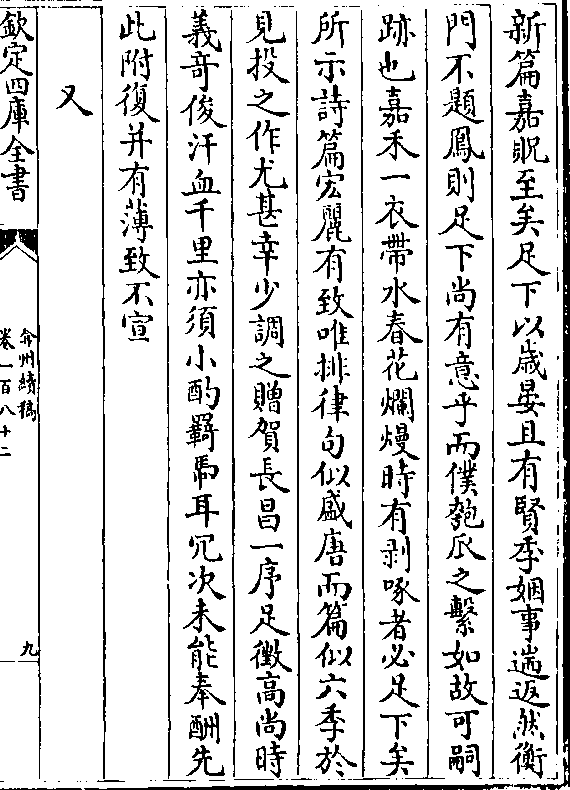 新篇嘉貺至矣足下以歳晏且有賢季姻事遄返然衡
門不題鳳則足下尚有意乎而僕匏瓜之繫如故可嗣
跡也嘉禾一衣帶水春花爛熳時有剥啄者必足下矣
所示詩篇宏麗有致唯排律句似盛唐而篇似六季於
見投之作尤甚幸少調之贈賀長昌一序足徴高尚時
義竒俊汗血千里亦須小酌羇馽耳冗次未能奉酬先
此附復并有薄致不宣
又
欽定四庫全書
弇州續稿
卷一百八十二
九